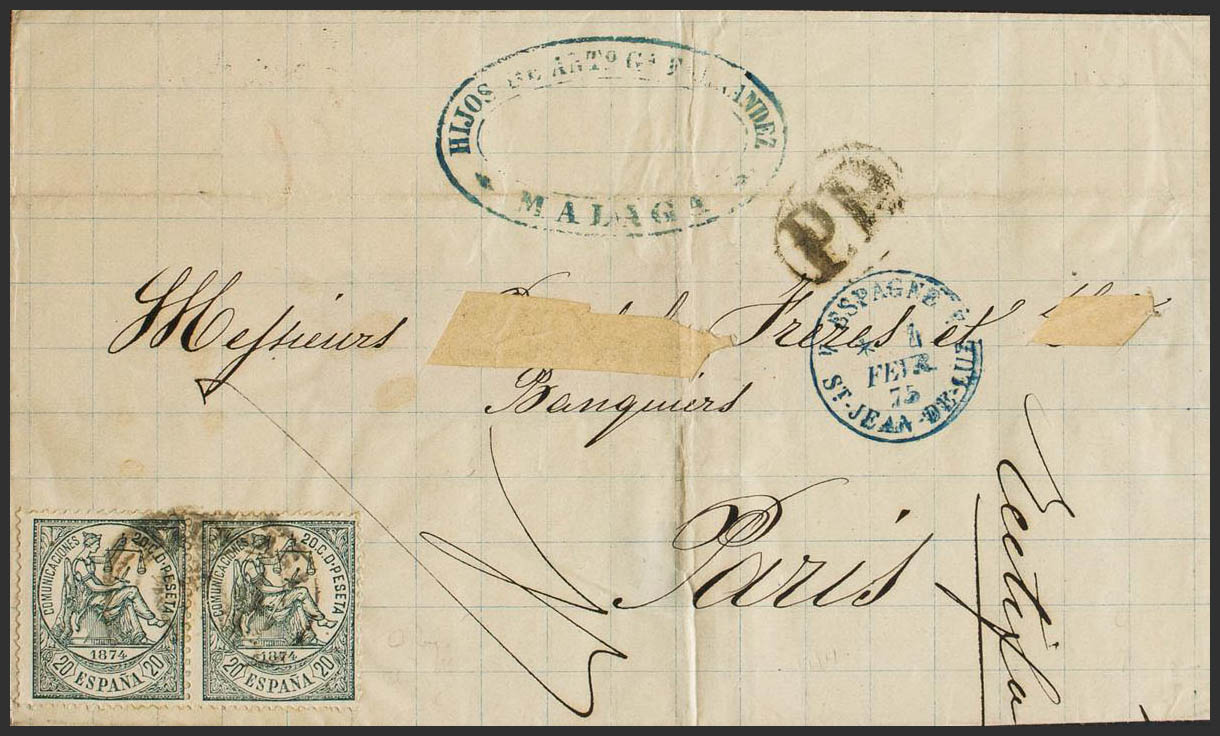 HIJOS DE ANTº Gª FERNANDEZ
MALAGA
PP
Messieurs Freres et
Banquiers
Paris
ESPAGNE
4
FEVR.
75
ST-JEAN-DE-LUZ
COMUNICACIONES 20 C. D PESETA
1874
20 ESPAÑA 20
COMUNICACIONES 20 C. D PESETA
1874
20 ESPAÑA 20